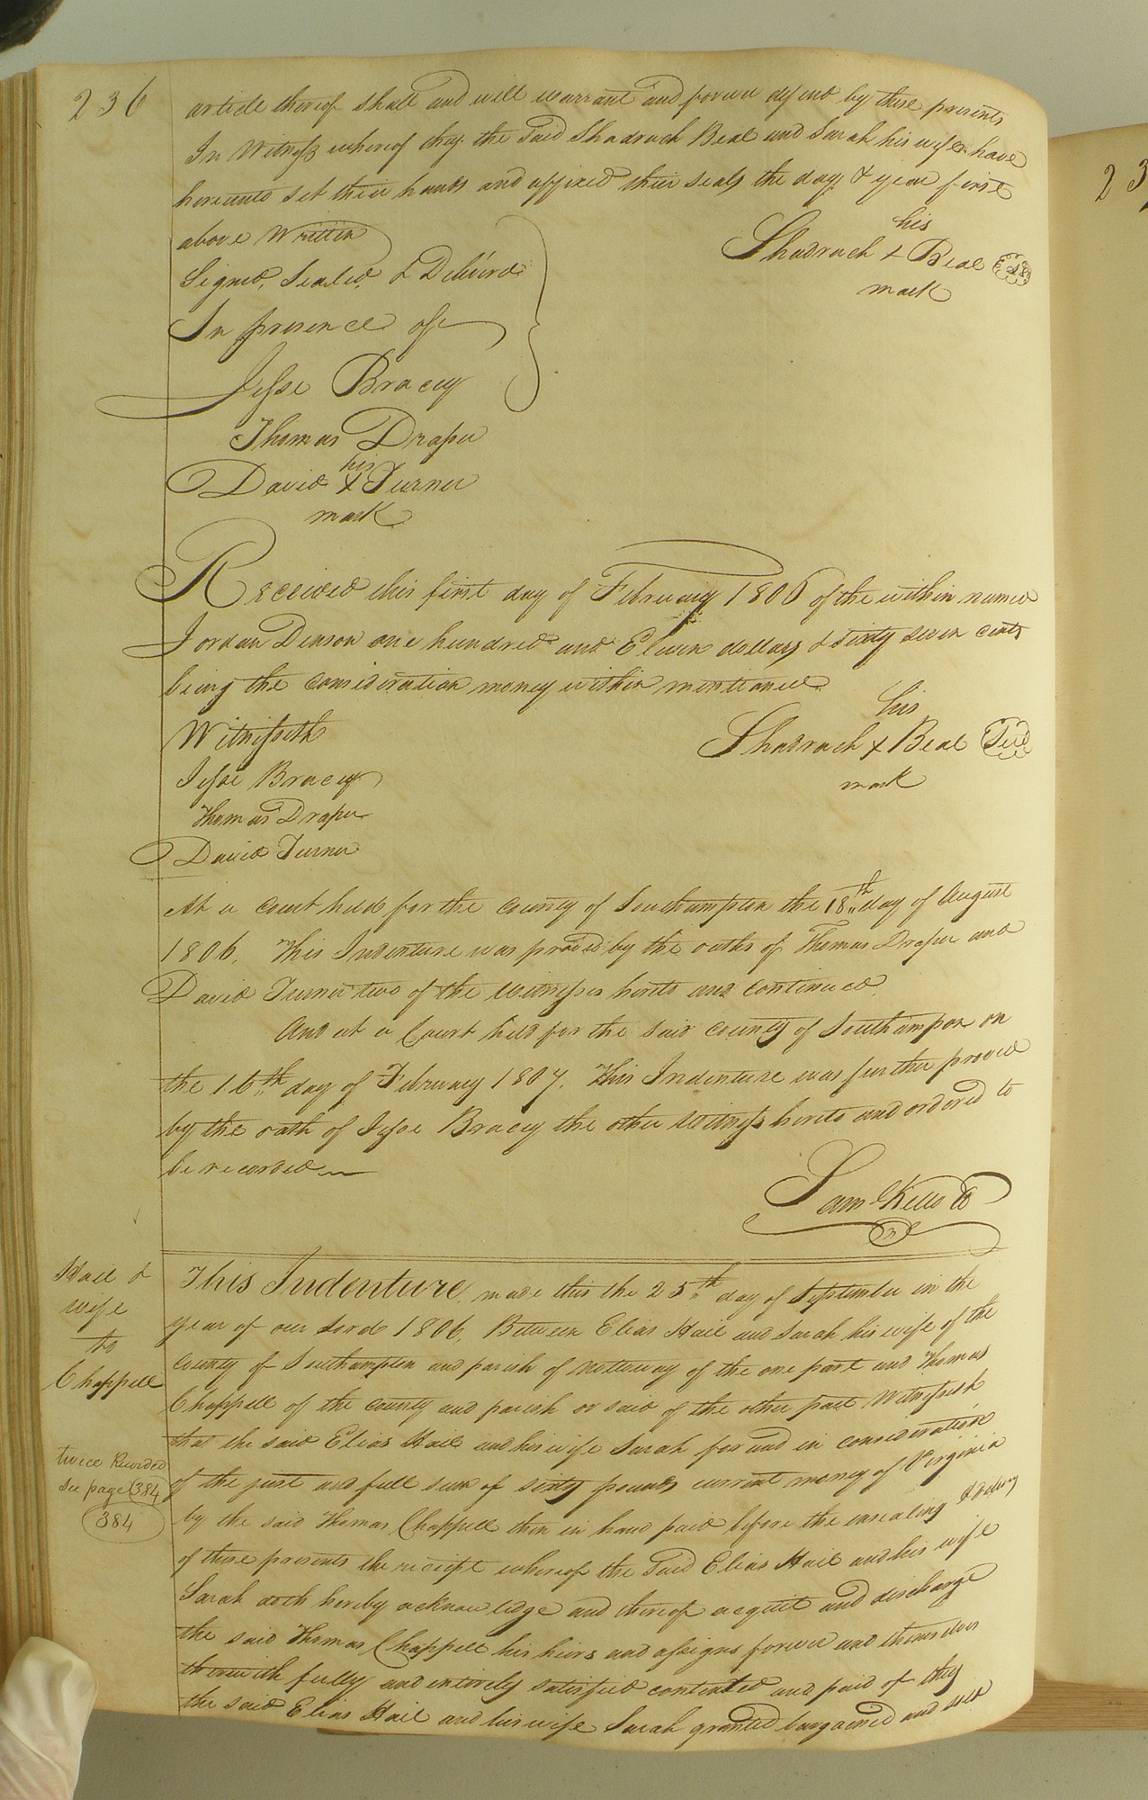 236
article thereof shall and will warrant and forever defend by these presents
In Witness whereof they the said Shadrach Beal and Sarah his wife have
hereunto set their hands and affixed their seals the day & year first
above Written
Signed, Sealed, & Deliver'd
In presence of
his
Shadrach + Beal
mark
Jesse Bracey
Thomas Draper
his
David X Turner
mark
Received this first day of February 1806 of the within named
Jordan Denson one hundred and Eleven dollars & sixty seven cents
being the consideration money within mentioned
his
Witnesseth
Shadrach + Beal Seal
mark
Jesse Bracey
Thomas Draper
David Turner
At a court held for the county of Southampton the 18th day of August
1806. This Indenture was proved by the oaths of Thomas Draper and
David Turner two of the Witnesses hereto and continued
And at a Court held for the said county of Southampton on
the 16th day of February 1807. This Indenture was further proved
by the oath of Jesse Bracey the other Witness hereto and ordered to
be recorded
Sam Kello
Hail &
wife
to
Chappell
twice Recorded
see page 384
384
This Indenture made this the 25th day of September in the
year of our Lord 1806, Between Elias Hail and Sarah his wife of the
County of Southampton and parish of Nottoway of the one part and Thomas
Chappell of the county and parish or said of the other part Witnesseth
that the said Elias Hail and his wife Sarah for and in consideration
of the just and full sum of sixty pounds current money of Virginia
by the said Thomas Chappell them in hand paid before the ensealing & delivy
of these presents the receipt whereof the said Elias Hail and his wife
Sarah doth hereby acknowledge and thereof acquit and discharge
the said Thomas Chappell his heirs and assigns forever and themselves
therewith fully and entirely satisfied contented and paid of they
the said Elias Hail and his wife Sarah granted bargained and sold
23